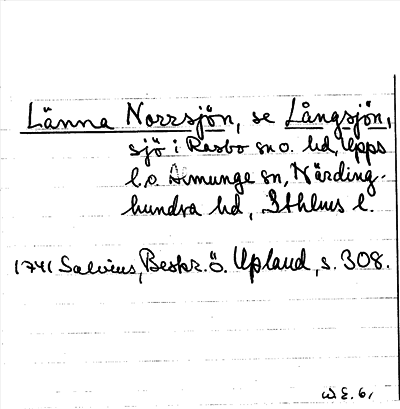 Länna Norrsjön, se Långsjön,
sjö i Rasbo sn o. hd, Upps
l. o. Almunge sn, Närding-
hundra hd, Sthlms l.
1741 Salvius, Beskr. ö. Upland, s. 308.
W E. 61